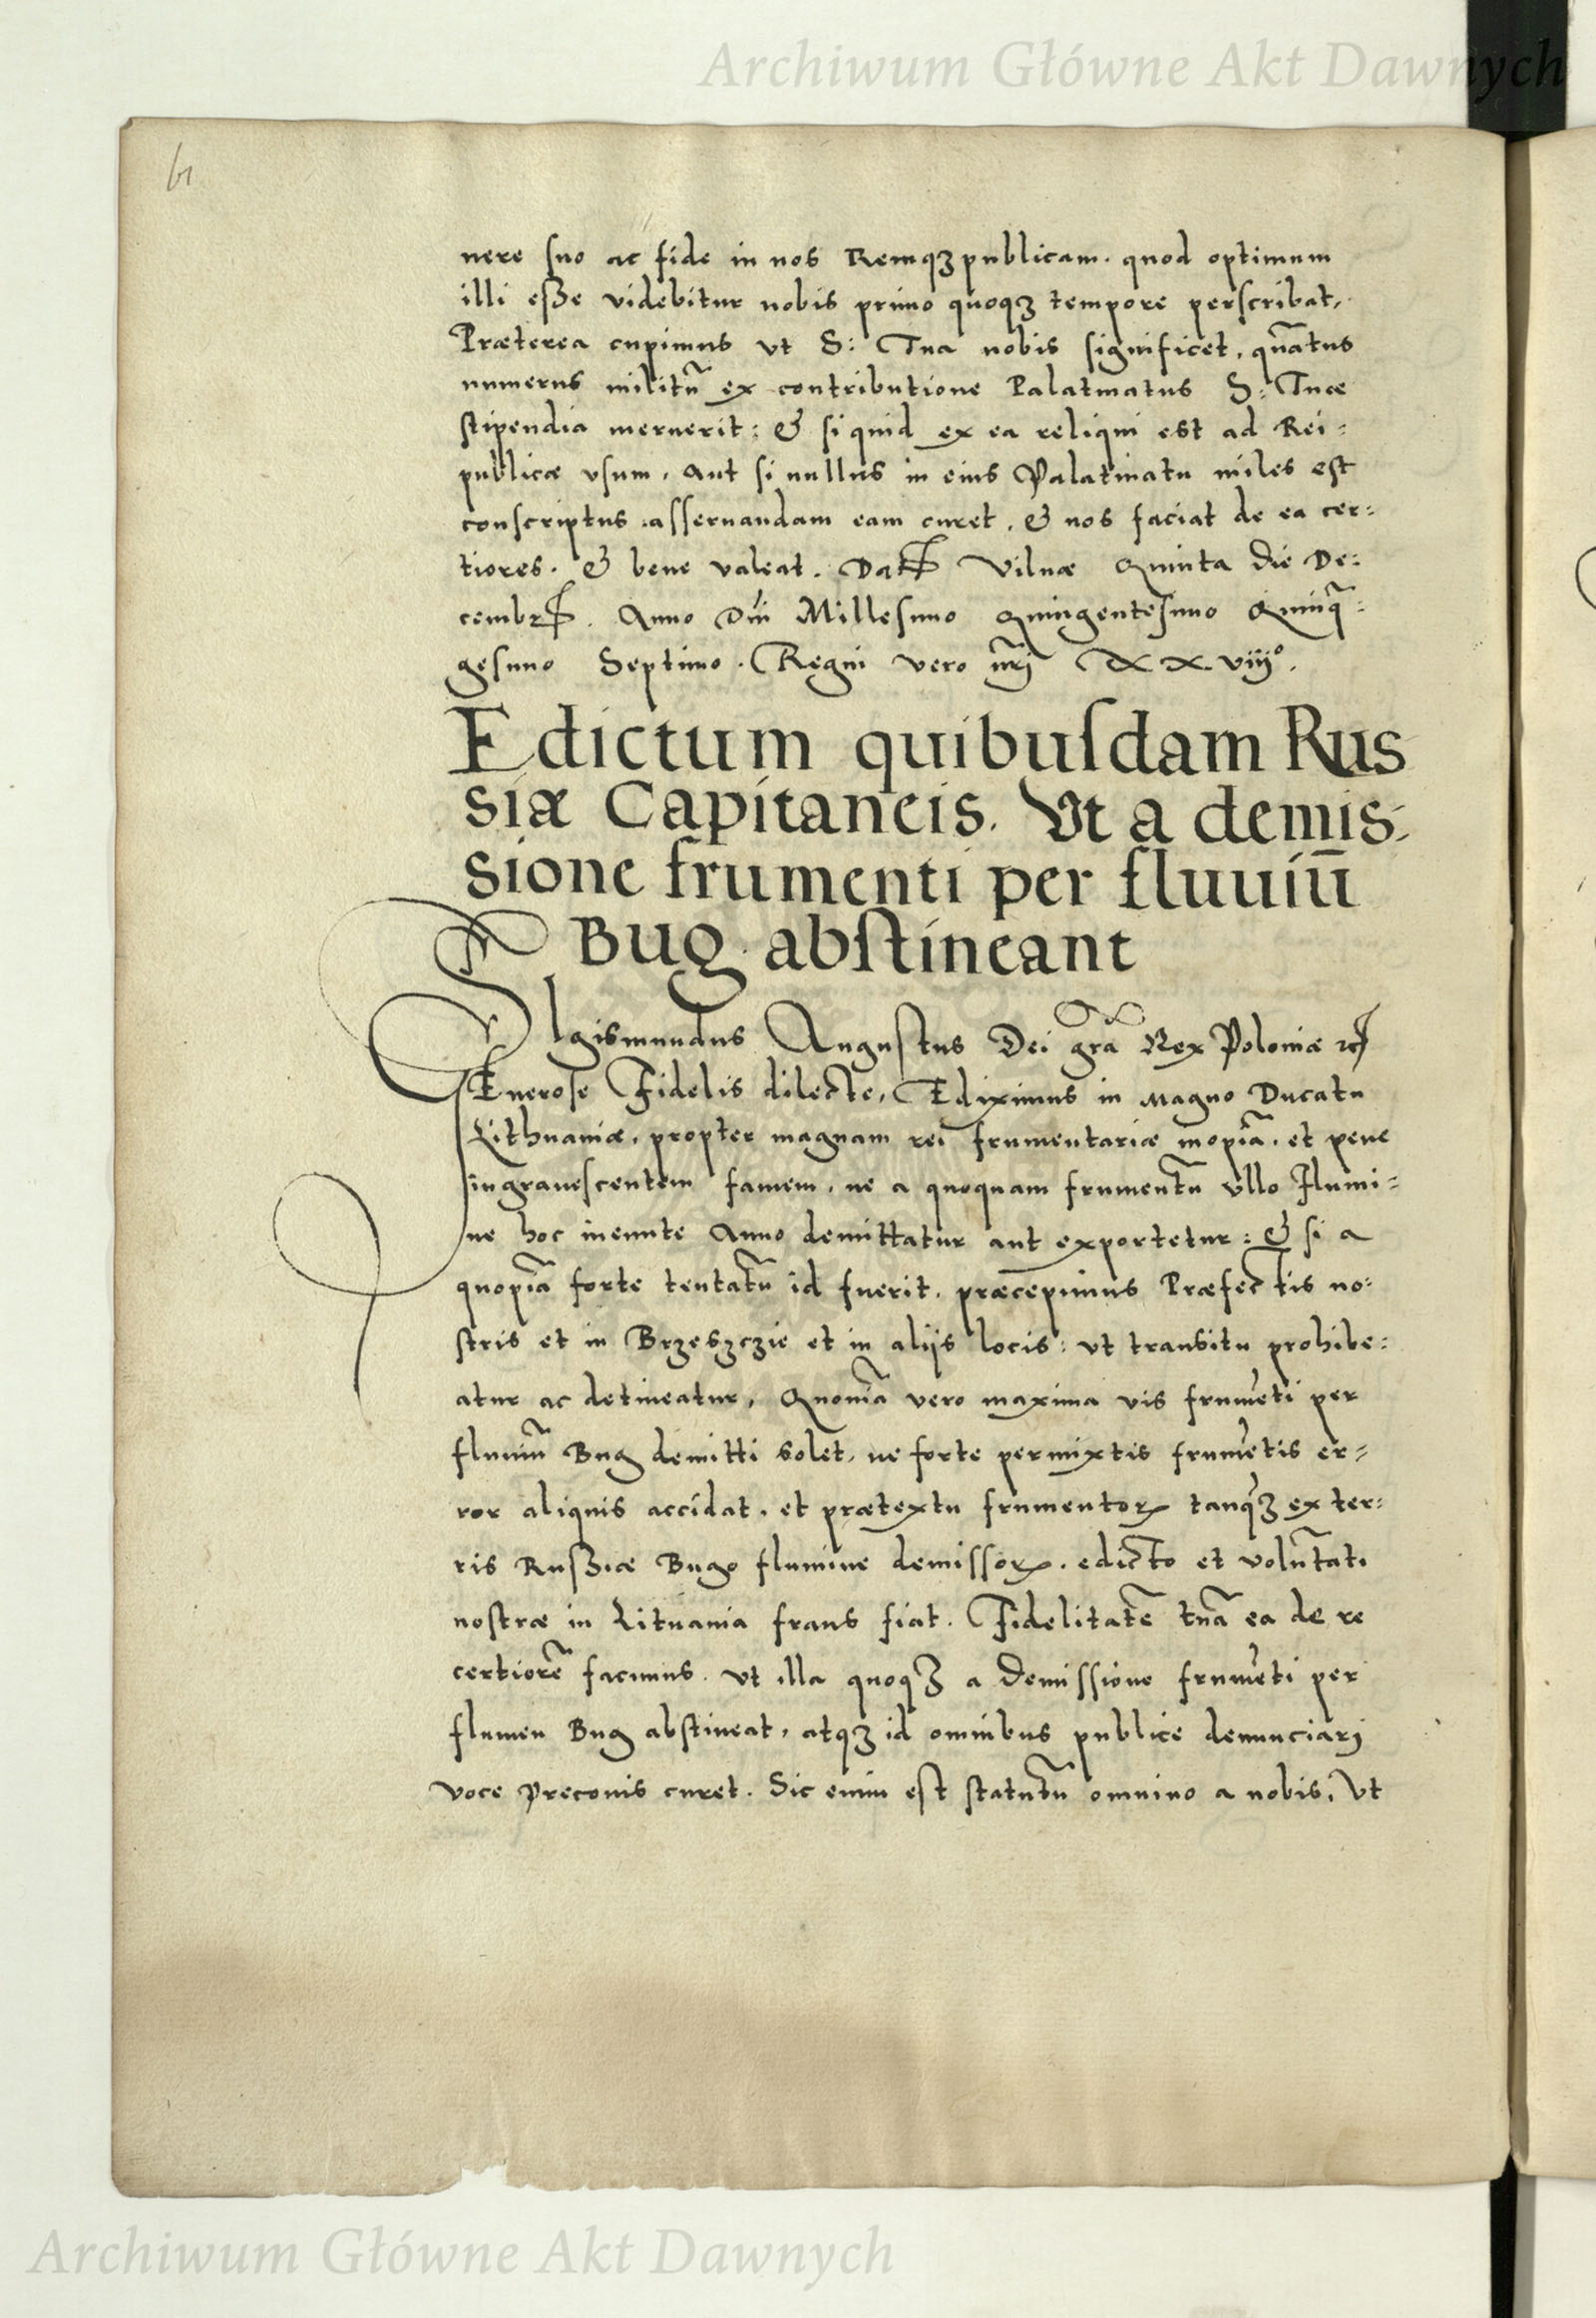 Archiwum Główne Akt Dawnych
61
nere suo ac fide in nos Remqꝫ publicam. quod optimum
illi esse videbitur nobis primo quoqꝫ tempore perscribat,
Præterea cupimus ut S: Tua nobis significet, qua̅tus
numerus militu̅ ex contributione Palatinatus S: Tuæ
stipendia meruerit: & si quid ex ea reliqui est ad Rei:
publicæ vsum, aut si nullus in eius Palatinatu miles est
conscriptus asseruandam eam curet, & nos faciat de ea cer:
tiores. & bene valeat. Datꝭ Vilnæ Quinta die De:
cembrꝭ. Anno Dni̅ Millesimo Quingentesimo Quinq̅:
gesimo Septimo. Regni vero nr̅j XXviijº.
Edictum quibusdam Rus
siæ Capitaneis. Ut a demis:
sione frumenti per fluuiu̅
Bug abstineant
SIgismundus Augustus Dei gra̅ Rex Poloniæ ꝛcꝭ
GEnerose Fidelis dilecte, Ediximus in Magno Ducatu
Lithuaniæ, propter magnam rei frumentariæ inopia̅, et pene
ingrauescentem famem, ne a quoquam frumentu̅ vllo Flumi:
ne hoc ineunte Anno demittatur aut exportetur: & si a
quopia̅ forte tentatu̅ id fuerit, præcepimus Præfectis no:
stris et in Brzesczie et in alijs locis: ut transitu prohibe:
atur ac detineatur, Quonia̅ vero maxima vis frume̅ti per
fluuiu̅ Bug demitti solet, ne forte permixtis frume̅tis er:
ror aliquis accidat, et prætextu frumentoꝝ tanqꝫ ex ter:
ris Russiæ Bugo flumine demissoꝝ, edicto et volu̅tati
nostræ in Lituania fraus fiat. Fidelitate̅ tua̅ ea de re
certiore̅ facimus. Ut illa quoqꝫ a demissione frume̅ti per
flumen Bug abstineat, atqꝫ id omnibus publice denunciarj
voce preconis curet. Sic enim est statutu̅ omnino a nobis, Ut
Archiwum Główne Akt Dawnych